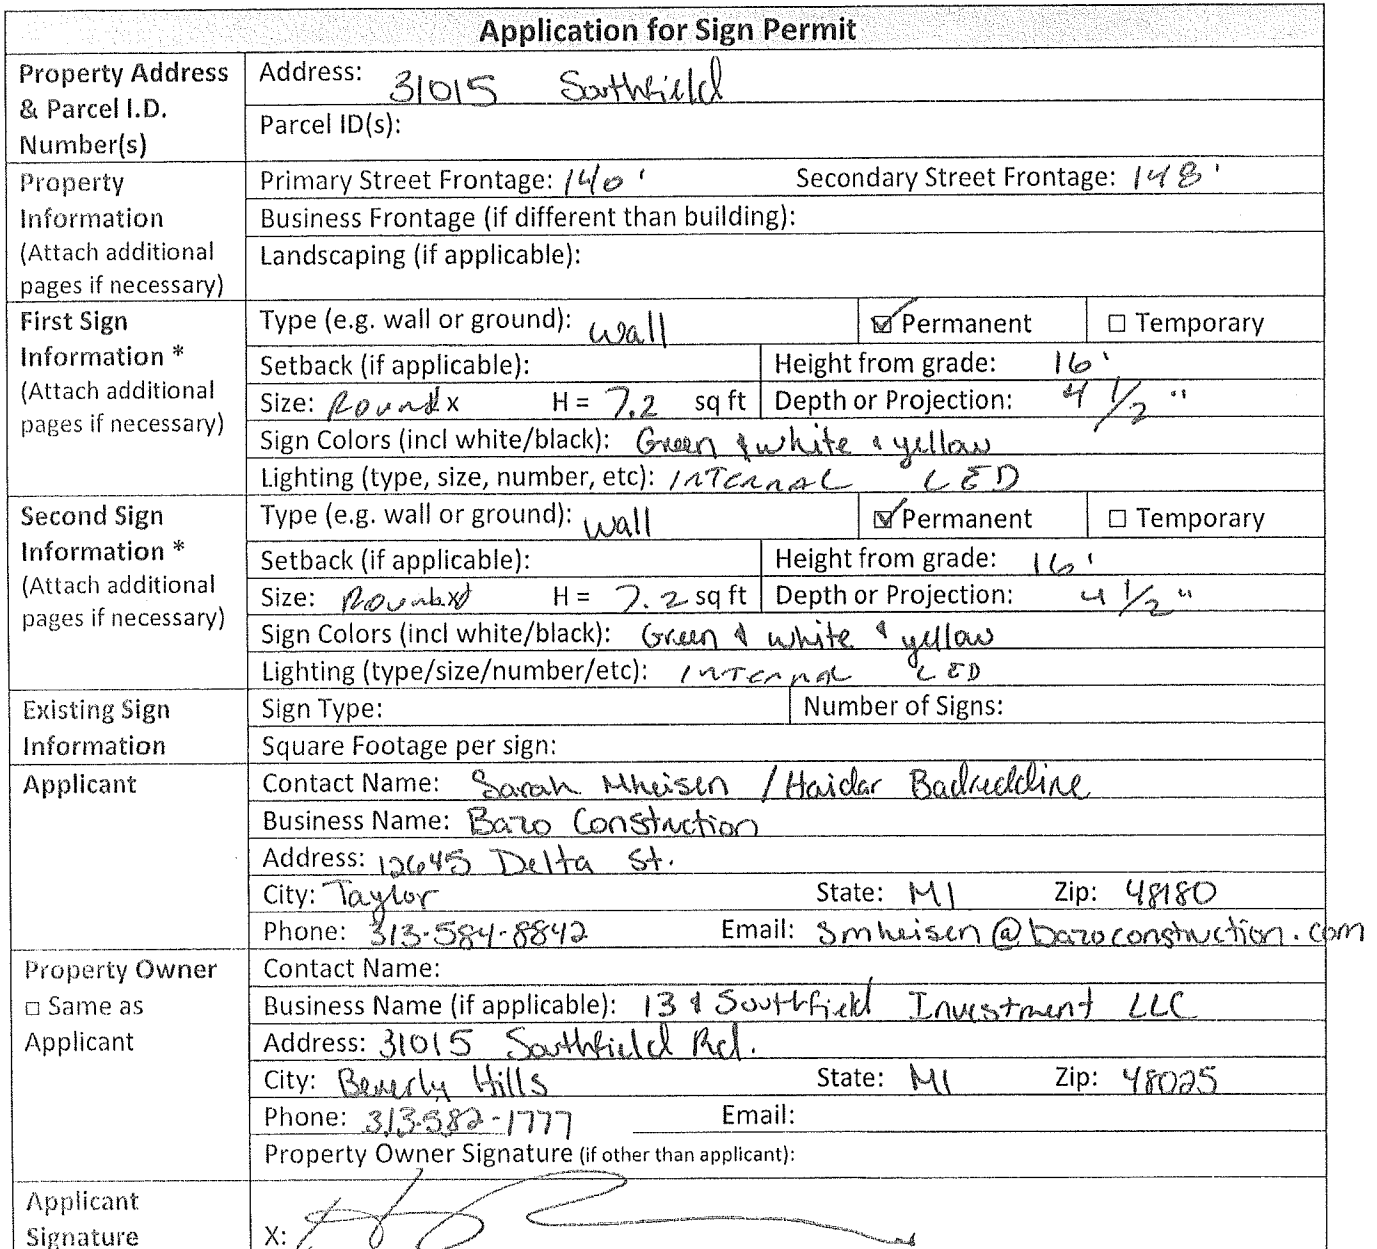 Application for Sign Permit
Property Address & Parcel I.D. Number(s)
Address: 31015 Southfield
Parcel ID(s):
Property Information (Attach additional pages if necessary)
Primary Street Frontage: 140 ' Secondary Street Frontage: 148 '
Business Frontage (if different than building):
Landscaping (if applicable):
First Sign Information * (Attach additional pages if necessary)
Type (e.g. wall or ground): wall ☑ Permanent □ Temporary
Setback (if applicable): Height from grade: 16 '
Size: Round x H = 7.2 sq ft Depth or Projection: 4 1/2 "
Sign Colors (incl white/black): Green & white & yellow
Lighting (type, size, number, etc): INTERNAL LED
Second Sign Information * (Attach additional pages if necessary)
Type (e.g. wall or ground): wall ☑ Permanent □ Temporary
Setback (if applicable): Height from grade: 16 '
Size: Round x H = 7.2 sq ft Depth or Projection: 4 1/2 "
Sign Colors (incl white/black): Green & white & yellow
Lighting (type/size/number/etc): INTERNAL LED
Existing Sign Information
Sign Type: Number of Signs:
Square Footage per sign:
Applicant
Contact Name: Sarah Mheisen / Haidar Badreddine
Business Name: Bazo Construction
Address: 12645 Delta St.
City: Taylor State: MI Zip: 48180
Phone: 313-584-8842 Email: smheisen@bazoconstruction.com
Property Owner □ Same as Applicant
Contact Name:
Business Name (if applicable): 13 & Southfield Investment LLC
Address: 31015 Southfield Rd.
City: Beverly Hills State: MI Zip: 48025
Phone: 313-582-1777 Email:
Property Owner Signature (if other than applicant):
Applicant Signature
X: